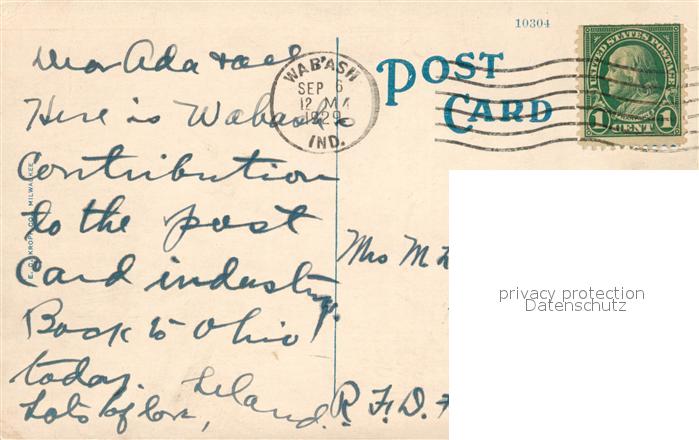 10304
POST
CARD
WABASH
SEP 6
12 M
1929
IND.
UNITED STATES POSTAGE
1 CENT 1
Dear Ada & all
Here is Wabash's
Contribution
to the post
Card industry.
Back to Ohio
today.
Lots of love,
Leland.
E. C. KROPP CO., MILWAUKEE
Mrs M
R. F. D.
privacy protection
Datenschutz